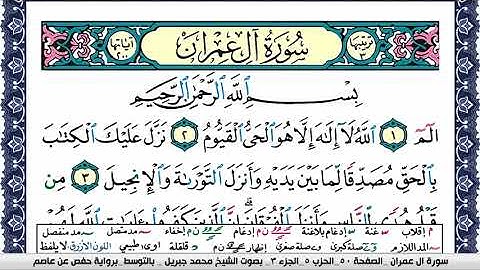 ترتيبها ٣ سُورَةُ آلِ عِمْرَانَ آياتها ٢٠٠
بِسْمِ ٱللَّهِ ٱلرَّحْمَٰنِ ٱلرَّحِيمِ
الٓمٓ ١ ٱللَّهُ لَآ إِلَٰهَ إِلَّا هُوَ ٱلْحَىُّ ٱلْقَيُّومُ ٢ نَزَّلَ عَلَيْكَ ٱلْكِتَٰبَ
بِٱلْحَقِّ مُصَدِّقًا لِّمَا بَيْنَ يَدَيْهِ وَأَنزَلَ ٱلتَّوْرَىٰةَ وَٱلْإِنجِيلَ ٣ مِن
قَبْلُ هُدًى لِّلنَّاسِ وَأَنزَلَ ٱلْفُرْقَانَ إِنَّ ٱلَّذِينَ كَفَرُوا۟ بِـَٔايَٰتِ ٱللَّهِ لَهُمْ
إقلاب غنة إدغام بلاغنة إدغام إخفاء مد متصل مد منفصل
المد اللازم صلة كبرى صلة صغرى إظهار قلقلة اوى طبيعي اللون الأزرق لا يلفظ
سورة ال عمران ـ الصفحة ٥٠ ـ الحزب ٥ ـ الجزء ٣ ـ بصوت الشيخ محمد جبريل ـ بالتوسط ـ برواية حفص عن عاصم